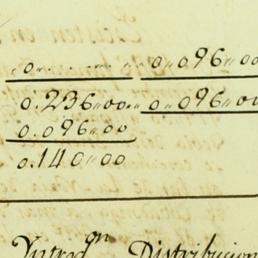 0. . . . . . . . 0,,096,,00
0.236,,00.. 0,,096,,00
0.096,,00
0.140,,00
Yntrod.on Distribucion